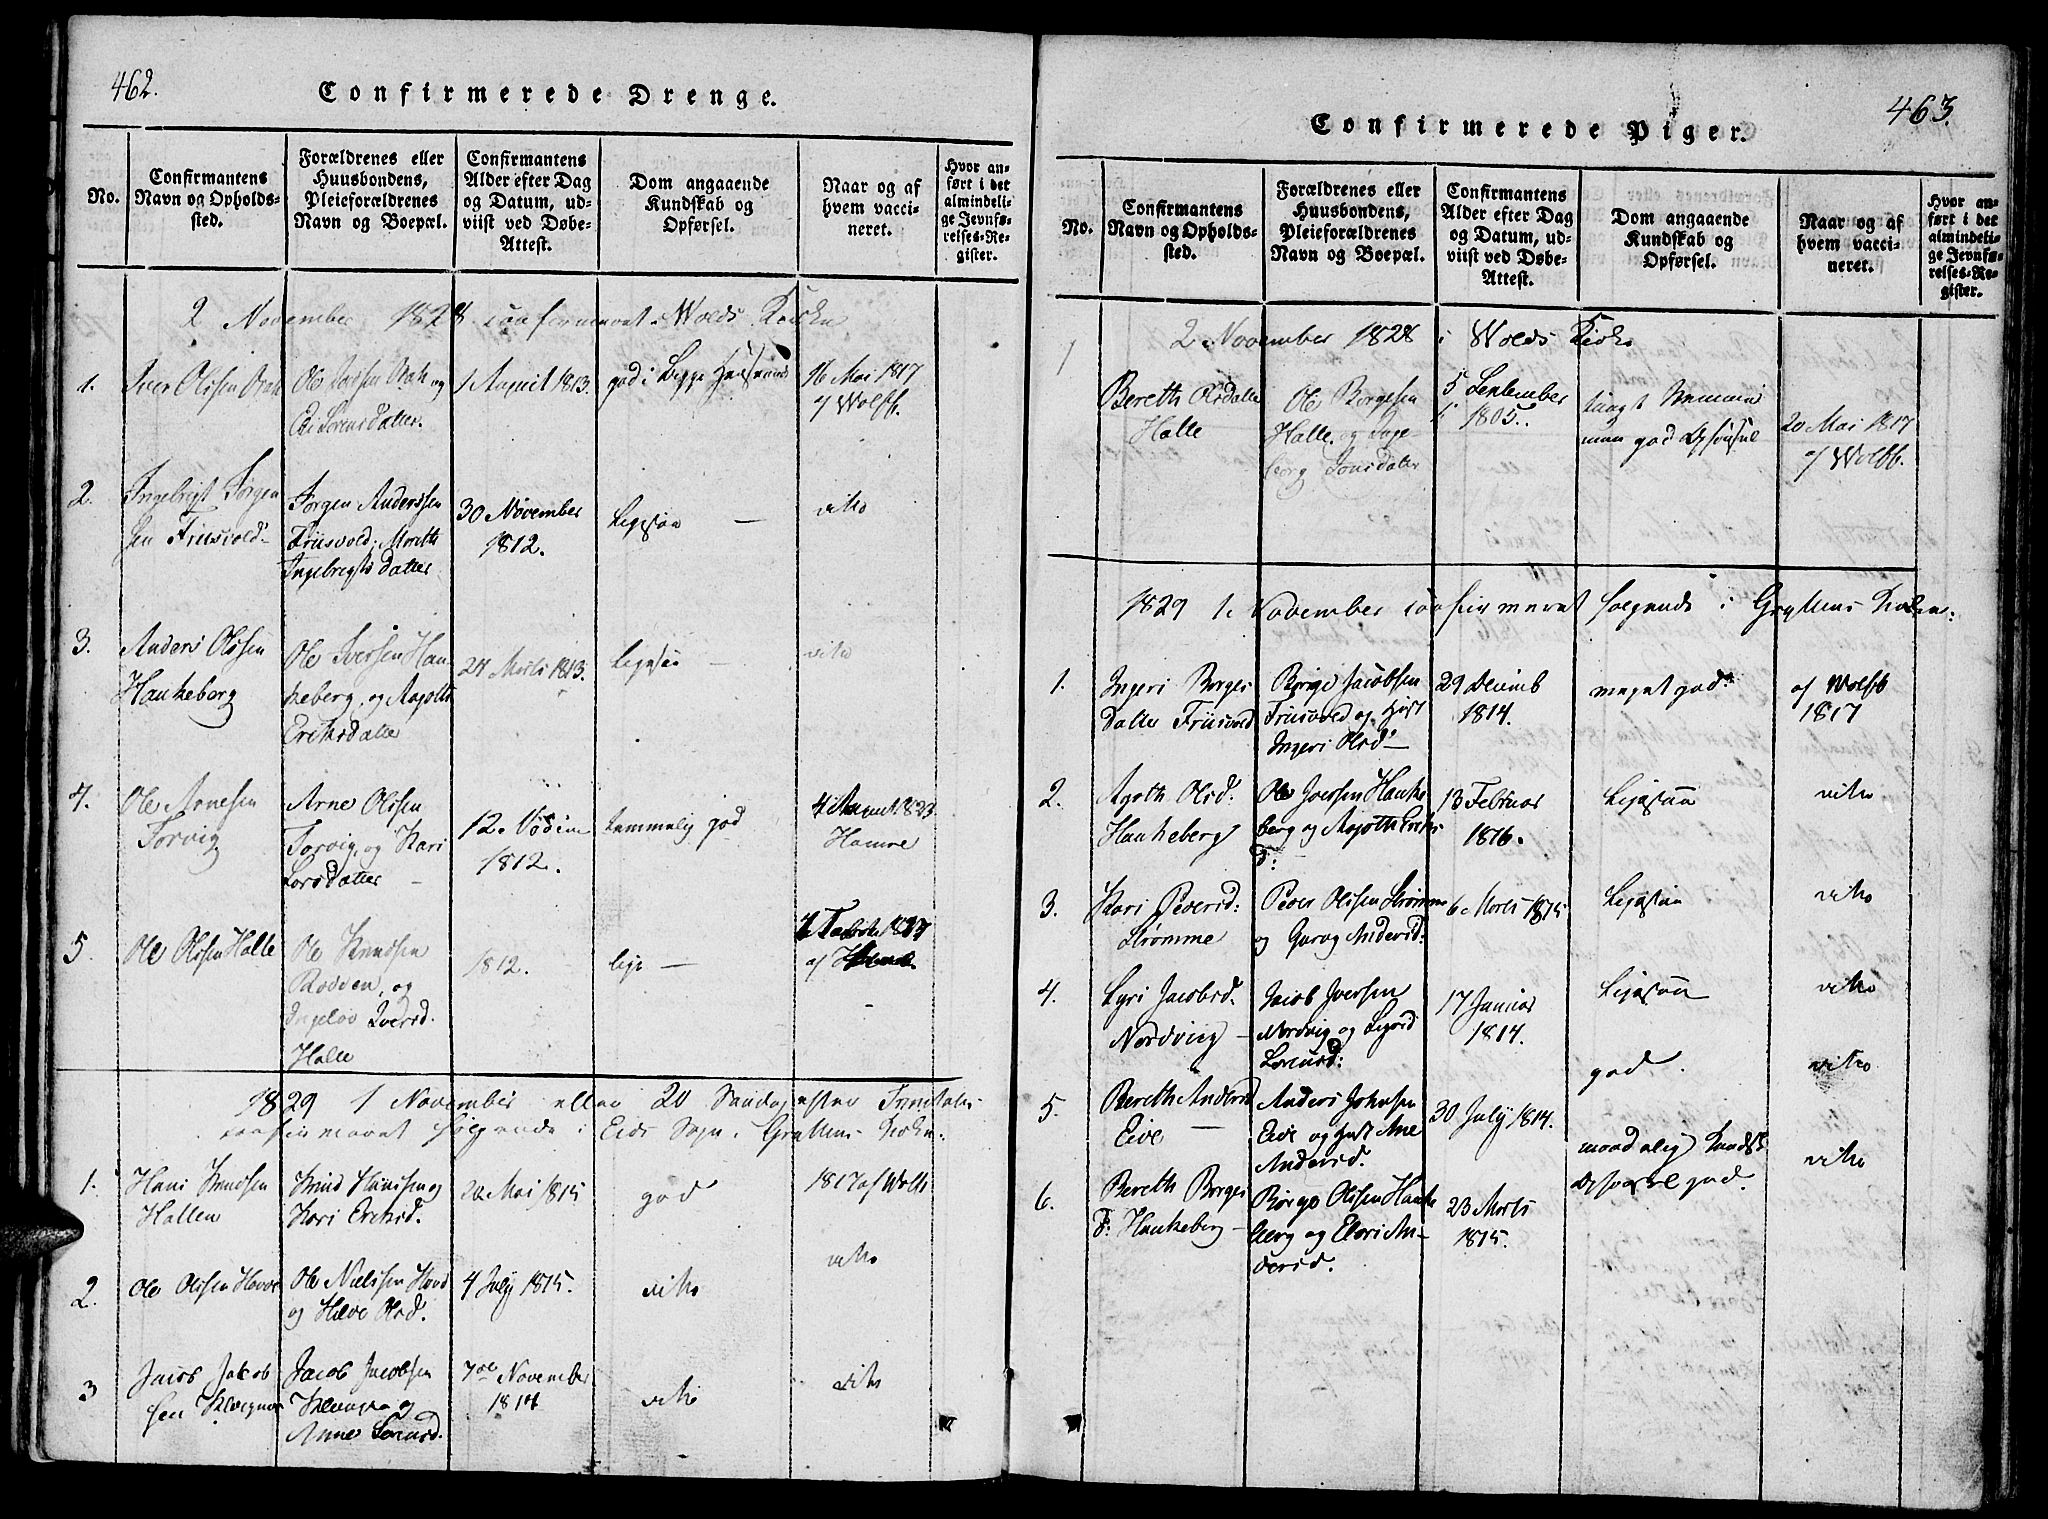 462.
Confirmerede Drenge.
No.
Confirmantens
Navn og Opholds-
sted.
Forældrenes eller
Huusbondens,
Pleieforældrenes
Navn og Boepæl.
Confirmantens
Alder efter Dag
og Datum, ud-
viist ved Døbe-
Attest.
Dom angaaende
Kundskab og
Opførsel.
Naar og af
hvem vacci-
neret.
Hvor an-
ført i det
almindeli-
ge Jevnfø-
relses-Re-
gister.
2 November 1828 confirmeret i Wolds Kirke
1.
Iver Olssen
Ole
og
Lorensdatter.
1 August 1813.
god i Begge
16 Mai 1817
af Wolff.
2.
Ingebrigt Jørgen
sen Friisvold
Jørgen Anderssen
Friisvold, Mareth
Ingebrigts datter
30 November
1812.
Ligesaa —
dito
3.
Anders Olssen
Haukeberg
Ole Iversen Hau
keberg, og Magotte
Ericksdatter
24 Marts 1813.
Ligesaa —
dito
4.
Ole Arnesen
Torvig
Arne Olssen
Torvig, og Kari
Larsdatter —
12.
1812.
temmelig god
4 1823
Hamre
5.
Ole Olssen Halle
Ole Knudsen
Rødven, og
Ingeløv Iversd.
Halle
1812.
lige —
1817
af
1829 1 November eller 20 Søndag efter Trinitatis
confirmeret følgende i Eids Sogn, Gryttens Kirke:
1.
Hans Knudsen
Hallen
Knud Hansen og
Kari Ericksd.
20 Mai 1815
god
1817 af Wolff
2.
Ole Olssen
Ole Nielssen
og Olsd.
4 July 1815.
dito
dito
3
Jacob Jakob
sen
Jacob Jacobsen
og
Anne Lorensd.
7de November
1814
dito
dito
463.
Confirmerede Piger.
No.
Confirmantens
Navn og Opholds-
sted.
Forældrenes eller
Huusbondens,
Pleieforældrenes
Navn og Boepæl.
Confirmantens
Alder efter Dag
og Datum, ud-
viist ved Døbe-
Attest.
Dom angaaende
Kundskab og
Opførsel.
Naar og af
hvem vacci-
neret.
Hvor an-
ført i det
almindeli-
ge Jevnfø-
relses-Re-
gister.
2 November 1828 i Wolds Kirke
1
Bereth Olsdatter
Halle
Ole Børgesen
Halle, og Inge-
borg Jonsdatter
5 September
1805.
god Opførsel
20 Mai 1817
af Wolff.
1829 1. November confirmeret følgende i Gryttens Kirke:
1.
Ingeri Børges
Datter Friisvold
Børge Jacobsen
Friisvold og
Ingeri Olsd —
29 Decemb
1814.
meget god
af Wolff
1817
2.
Agoth Olsd.
Haukeberg
Ole Iversen Hauke
berg og Magotte Ericks
D:
13 Februar
1816.
Ligesaa
dito
3.
Kari Pedersd:
Strømme
Peder Olssen Strømme
og Andersd:
6 Marts 1815
Ligesaa
dito
4.
Jacobsd.
Nordvig —
Jacob Iversen
Nordvig og
Lorensd:
17 Januar
1814.
Ligesaa
dito
5.
Bereth Andersd
Eive —
Anders Johnsen
Eive og Ane
Andersd.
30 July 1814.
god.
dito
6.
Bereth Børges
D: Haukeberg —
Børge Olssen Hauke
berg og An-
dersd.
23 Marts
1815.
maadelig Kundsk
Opførsel god.
dito